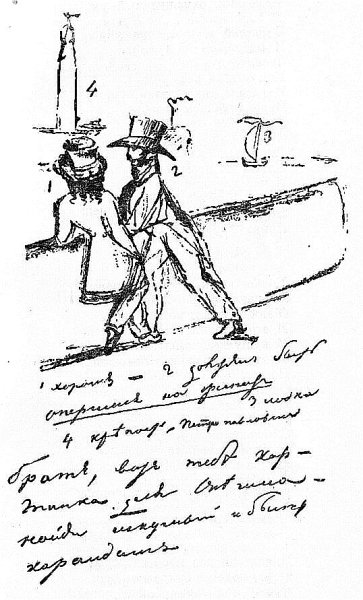 4
3
2
1
1 хорошъ — 2 долженъ быть
опершися на гранитъ
3 лодка
4 крѣпость Петропавловская
братъ, вотъ тебѣ кар-
тинка для Онѣгина -
найди искусный и быстр
карандашъ